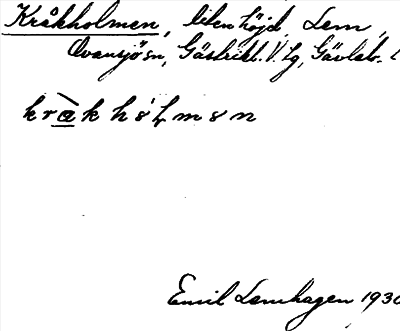 Kråkholmen, liten höjd, Lem,
Ovansjö sn, Gästrikl. V. tg, Gävleb. l
kràk hólmen
Emil Lamhagen 1930